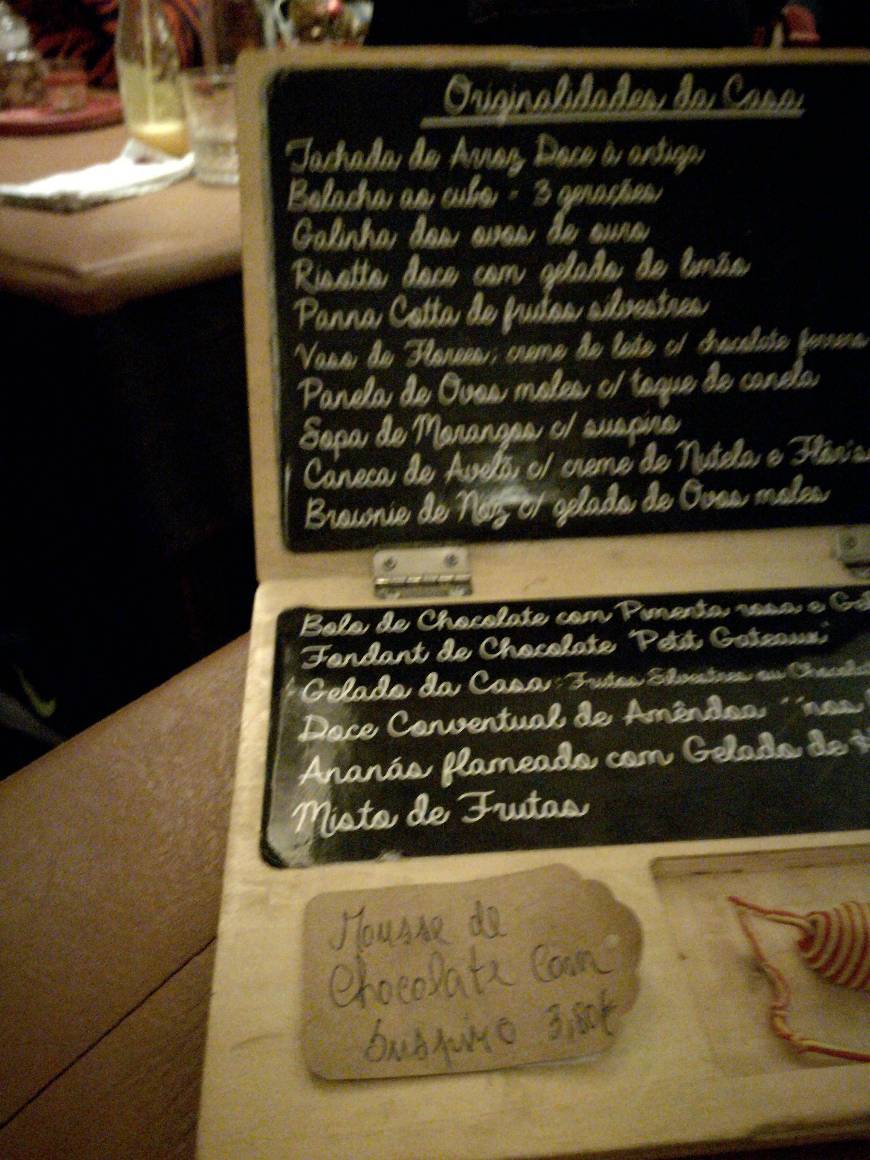 Originalidades da Casa
Tachada de Arroz Doce à antiga
Bolacha ao cubo - 3 gerações
Galinha dos ovos de ouro
Risotto doce com gelado de limão
Panna Cotta de frutos silvestres
Vaso de Flores; creme de leite c/ chocolate ferrero
Panela de Ovos moles c/ toque de canela
Sopa de Morangos c/ suspiro
Caneca de Avelã c/ creme de Nutela e
Brownie de Noz c/ gelado de Ovos moles
Bolo de Chocolate com Pimenta rosa e
Fondant de Chocolate "Petit Gateaux"
Gelado da Casa: Frutos Silvestres ou
Doce Conventual de Amêndoa
Ananás flameado com Gelado de
Misto de Frutas
Mousse de
Chocolate com
suspiro 3,80€